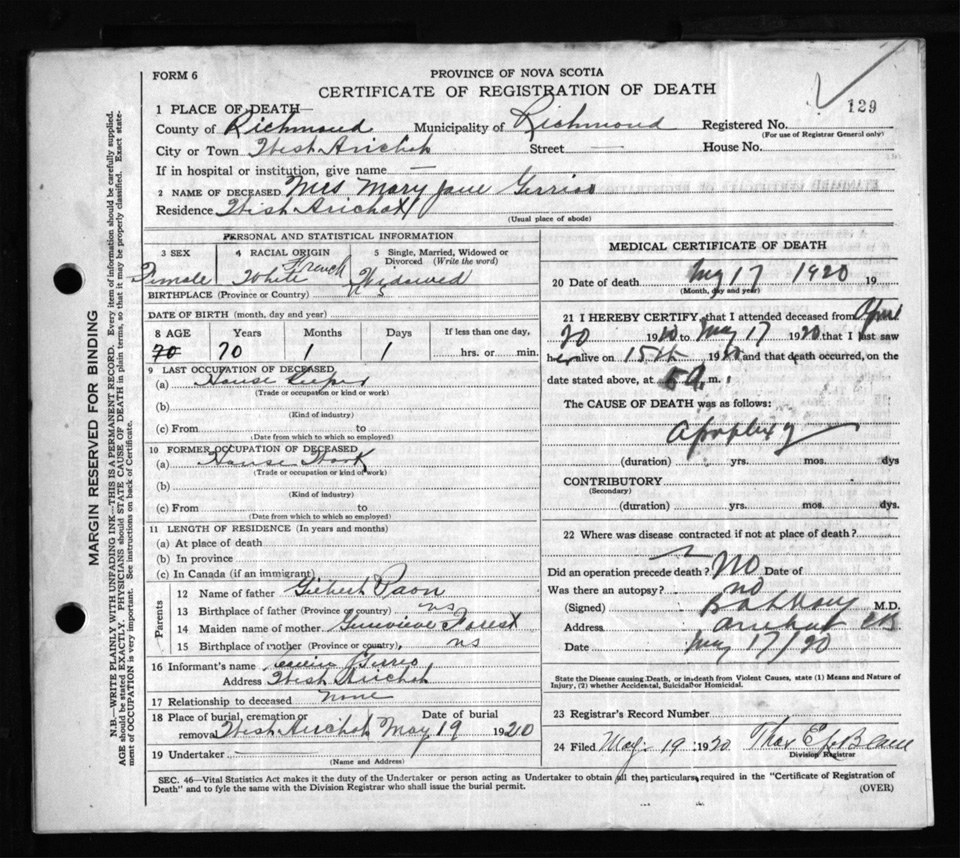 FORM 6
PROVINCE OF NOVA SCOTIA
CERTIFICATE OF REGISTRATION OF DEATH
129
1 PLACE OF DEATH—
County of Richmond Municipality of Richmond Registered No.
(For use of Registrar General only)
City or Town West Arichat Street — House No.
If in hospital or institution, give name —
2 NAME OF DECEASED Mrs Mary Jane Gerrior
Residence West Arichat
(Usual place of abode)
PERSONAL AND STATISTICAL INFORMATION
3 SEX 4 RACIAL ORIGIN 5 Single, Married, Widowed or Divorced (Write the word)
Female White French Widowed
BIRTHPLACE (Province or Country) N S
DATE OF BIRTH (month, day and year)
8 AGE Years Months Days If less than one day,
70 70 1 1 hrs. or min.
9 LAST OCCUPATION OF DECEASED
(a) House Keeper
(Trade or occupation or kind or work)
(b)
(Kind of industry)
(c) From to
(Date from which to which so employed)
10 FORMER OCCUPATION OF DECEASED
(a) House Work
(Trade or occupation or kind of work)
(b)
(Kind of industry)
(c) From to
(Date from which to which so employed)
11 LENGTH OF RESIDENCE (In years and months)
(a) At place of death
(b) In province
(c) In Canada (if an immigrant)
Parents
12 Name of father Gilbert Paon
13 Birthplace of father (Province or country) ns
14 Maiden name of mother Genevieve Forest
15 Birthplace of mother (Province or country) ns
16 Informant's name
Address West Arichat
17 Relationship to deceased none
18 Place of burial, cremation or removal West Arichat Date of burial May 19 1920
19 Undertaker —
(Name and Address)
MEDICAL CERTIFICATE OF DEATH
20 Date of death May 17 1920 19
(Month, day and year)
21 I HEREBY CERTIFY, that I attended deceased from April
20 1920 to May 17 1920 that I last saw
her alive on 15th 1920 and that death occurred, on the
date stated above, at 5 a. m.
The CAUSE OF DEATH was as follows:
Apoplexy
(duration) yrs. mos. dys
CONTRIBUTORY
(Secondary)
(duration) yrs. mos. dys.
22 Where was disease contracted if not at place of death?
Did an operation precede death? NO Date of
Was there an autopsy? no
(Signed) M.D.
Address Arichat CB
Date May 17/20
State the Disease causing Death, or in death from Violent Causes, state (1) Means and Nature of
Injury, (2) whether Accidental, Suicidal or Homicidal.
23 Registrar's Record Number
24 Filed May 19 1920
Division Registrar
SEC. 46—Vital Statistics Act makes it the duty of the Undertaker or person acting as Undertaker to obtain all the particulars required in the "Certificate of Registration of
Death" and to fyle the same with the Division Registrar who shall issue the burial permit. (OVER)
MARGIN RESERVED FOR BINDING
N.B.—WRITE PLAINLY WITH UNFADING INK—THIS IS A PERMANENT RECORD. Every item of information should be carefully supplied.
AGE should be stated EXACTLY. PHYSICIANS should STATE CAUSE OF DEATH in plain terms, so that it may be properly classified. Exact state-
ment of OCCUPATION is very important. See instructions on back of Certificate.